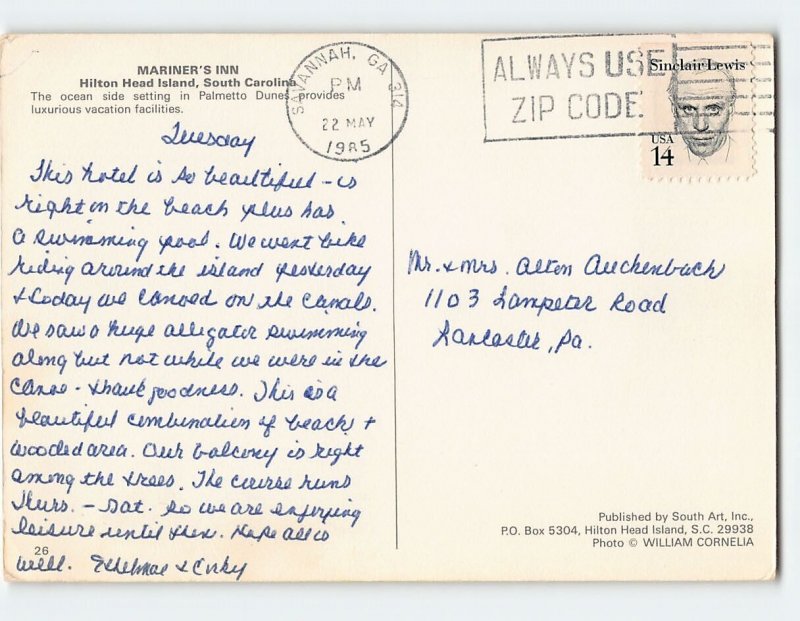 MARINER'S INN
Hilton Head Island, South Carolina
The ocean side setting in Palmetto Dunes provides
luxurious vacation facilities.
SAVANNAH, GA 314
PM
22 MAY
1985
ALWAYS USE
ZIP CODE
Sinclair Lewis
USA
14
Tuesday
This hotel is so beautiful - is
right on the beach plus has
a swimming pool. We went bike
riding around the island yesterday
& today we canoed on the canals.
We saw a huge alligator swimming
along but not while we were in the
canoe - thank goodness. This is a
beautiful combination of beach +
wooded area. Our balcony is right
among the trees. The course runs
Thurs. - Sat. so we are enjoying
leisure until then. Hope all is
well. Ethelmae & Corky
26
Mr. & Mrs. Alton Auchenbach
1103 Lampeter Road
Lancaster, Pa.
Published by South Art, Inc.,
P.O. Box 5304, Hilton Head Island, S.C. 29938
Photo © WILLIAM CORNELIA